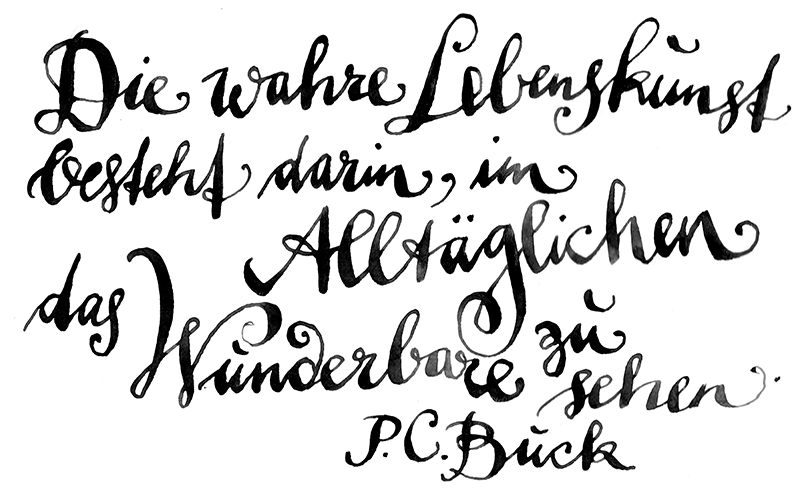 Die wahre Lebenskunst
besteht darin, im
Alltäglichen
das Wunderbare zu
sehen.
P.C. Buck